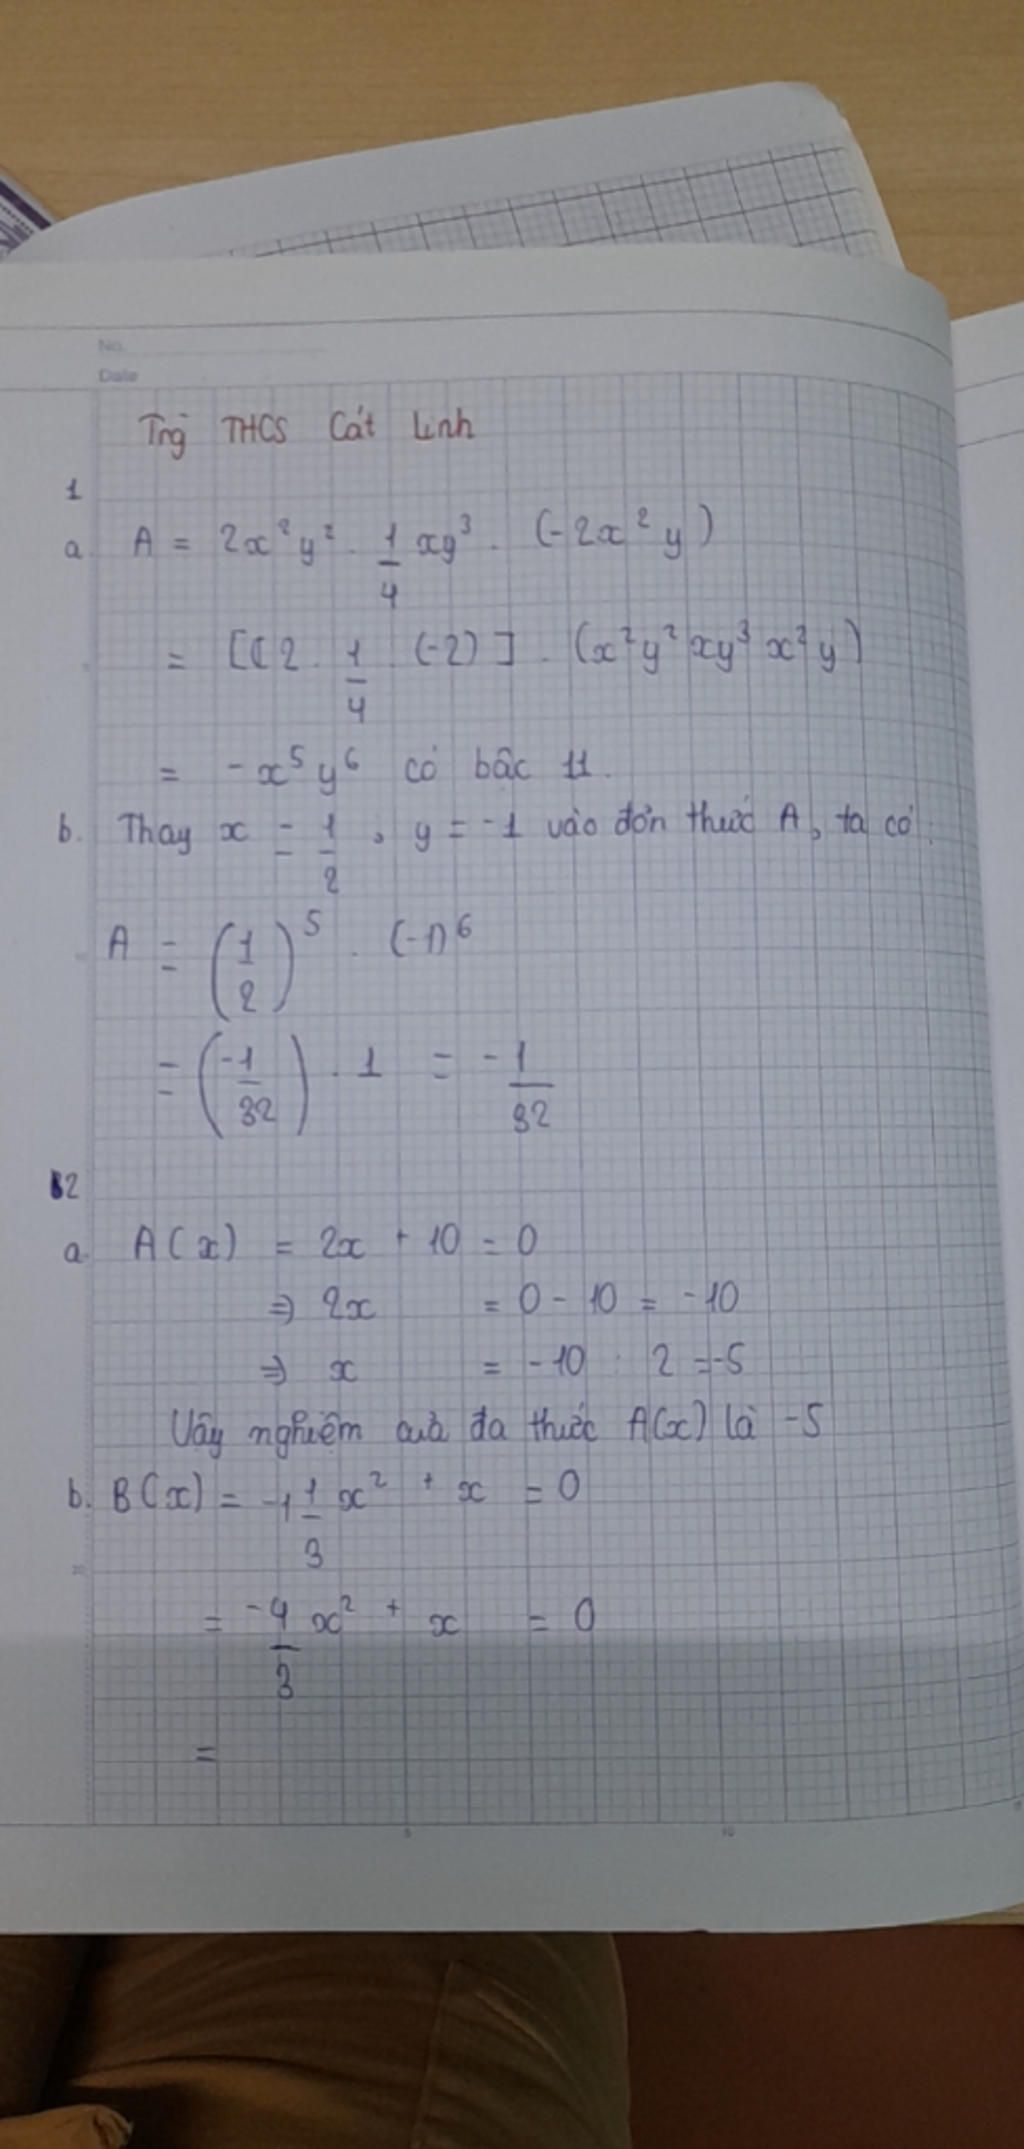 No.
Date
Trg THCS Cát Linh
1
a. A = 2x²y² . 1/4 xy³ . (-2x²y)
= [(2 . 1/4 . (-2)] . (x²y² xy³ x²y)
= -x⁵y⁶ có bậc 11.
b. Thay x = 1/2 , y = -1 vào đơn thức A, ta có:
A = (1/2)⁵ . (-1)⁶
= (-1/32) . 1 = -1/32
2
a. A(x) = 2x + 10 = 0
⇒ 2x = 0 - 10 = -10
⇒ x = -10 : 2 = -5
Vậy nghiệm của đa thức A(x) là -5
b. B(x) = -1 1/3 x² + x = 0
= -4/3 x² + x = 0
=
20
5 10